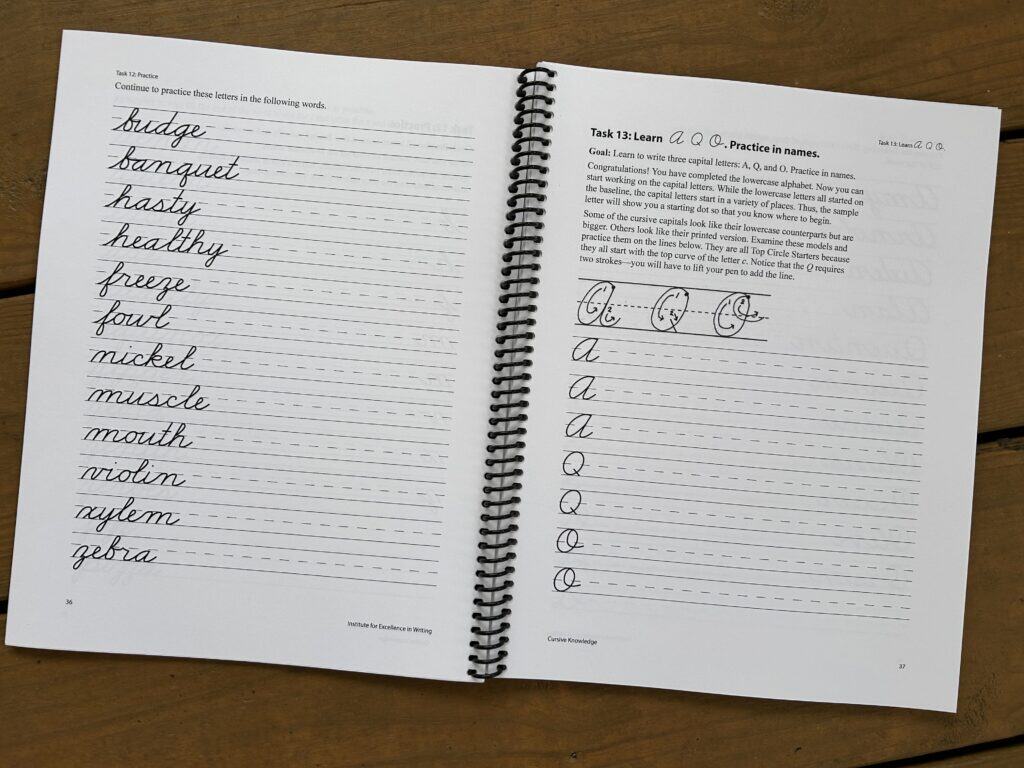 Task 12: Practice
Continue to practice these letters in the following words.
budge
banquet
hasty
healthy
freeze
fowl
nickel
muscle
mouth
violin
xylem
zebra
36
Institute for Excellence in Writing
Task 13: Learn A Q O
Task 13: Learn A Q O. Practice in names.
Goal: Learn to write three capital letters: A, Q, and O. Practice in names.
Congratulations! You have completed the lowercase alphabet. Now you can
start working on the capital letters. While the lowercase letters all started on
the baseline, the capital letters start in a variety of places. Thus, the sample
letter will show you a starting dot so that you know where to begin.
Some of the cursive capitals look like their lowercase counterparts but are
bigger. Others look like their printed version. Examine these models and
practice them on the lines below. They are all Top Circle Starters because
they all start with the top curve of the letter c. Notice that the Q requires
two strokes—you will have to lift your pen to add the line.
A Q O
A
A
A
Q
Q
O
O
Cursive Knowledge
37